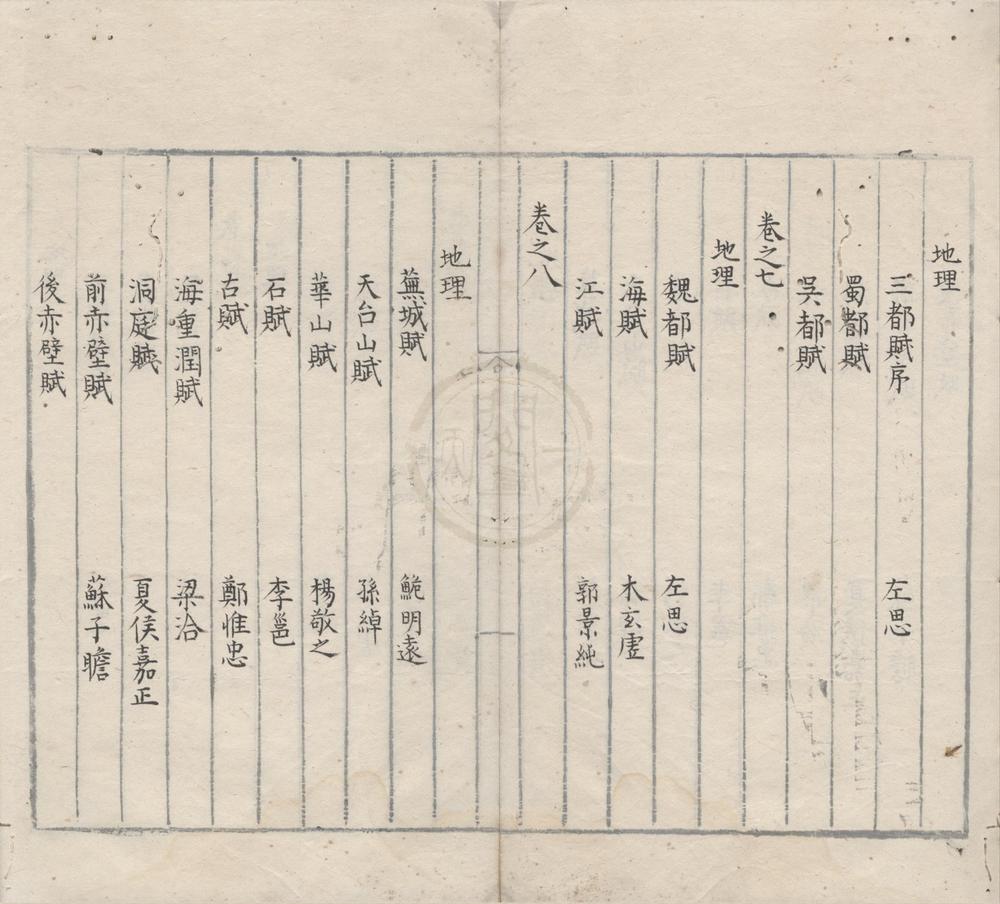 地理
三都賦序 左思
蜀都賦
吳都賦
卷之七
地理
魏都賦 左思
海賦 木玄虛
江賦 郭景純
卷之八
地理
蕪城賦 鮑明遠
天台山賦 孫綽
華山賦 楊敬之
石賦 李邕
古賦 鄭惟忠
海重潤賦 梁洽
洞庭賦 夏侯嘉正
前赤壁賦 蘇子瞻
後赤壁賦